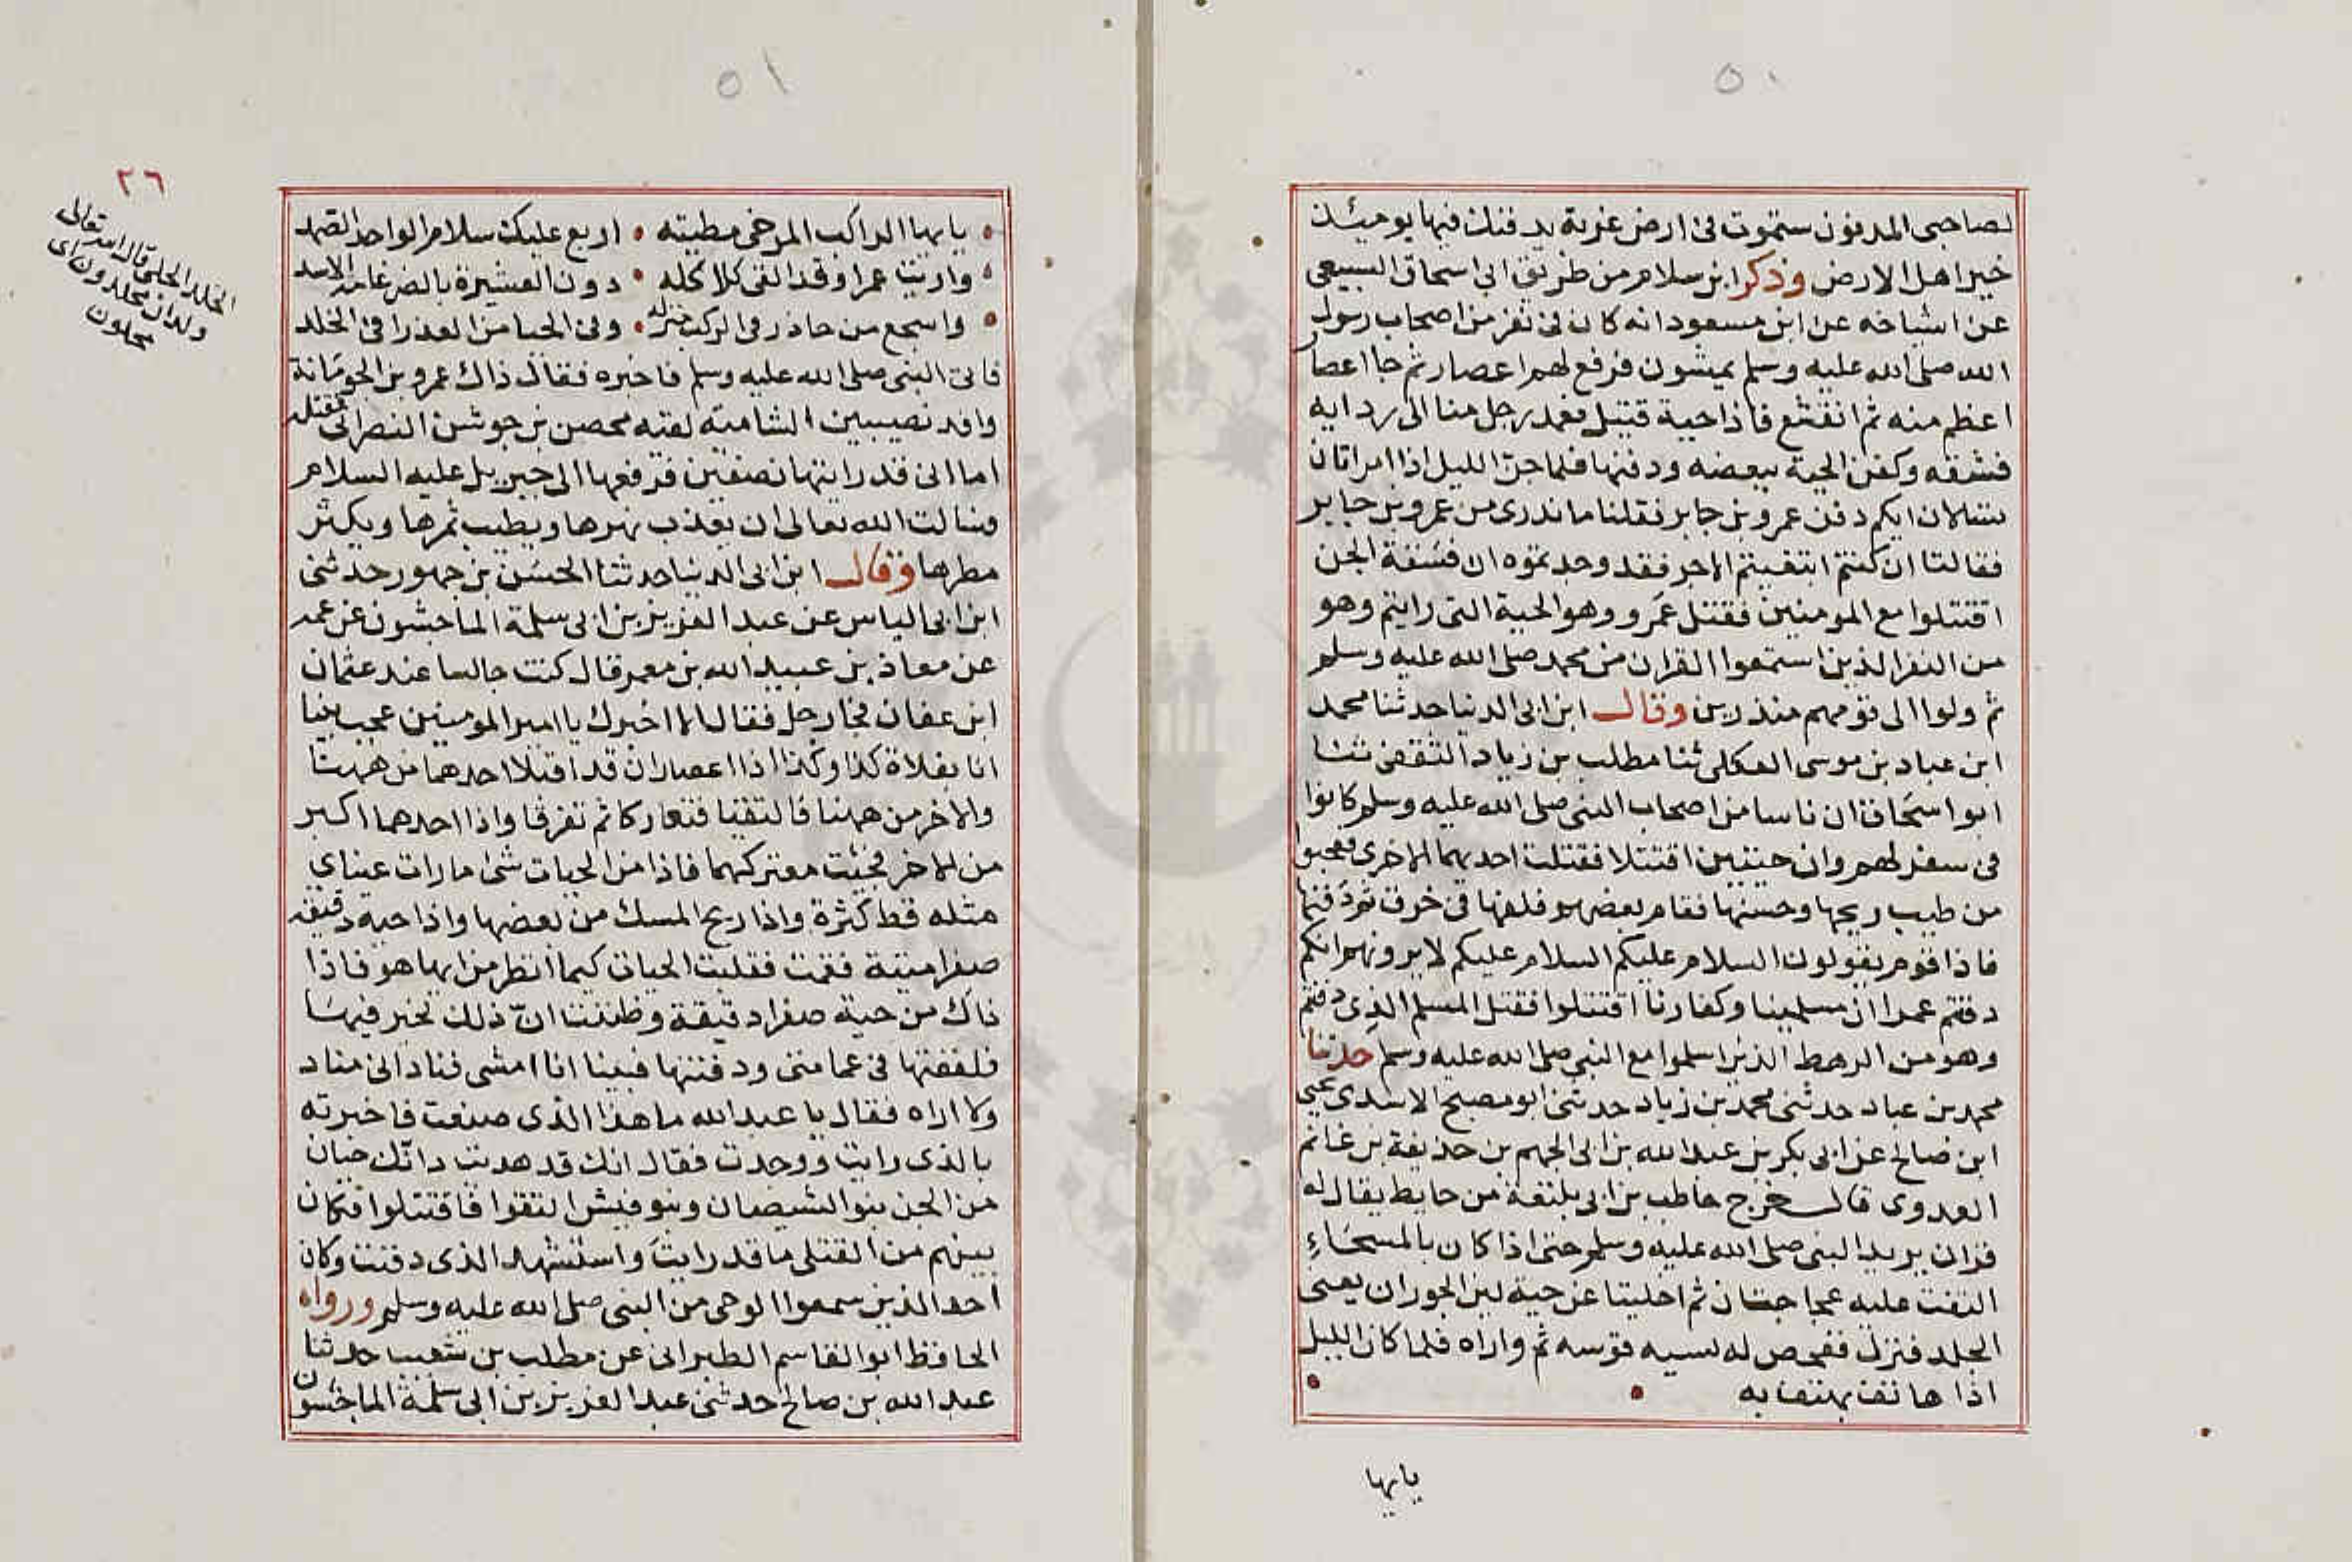 ٥٠
لصاحبي المدفون ستموت في ارض غربة يدفنك فيها يومئذ
خير اهل الارض وذكر ابن سلام من طريق ابي اسحاق السبيعي
عن اشياخه عن ابن مسعود انه كان في نفر من اصحاب رسول
الله صلى الله عليه وسلم يمشون فرفع لهم اعصار ثم جا اعصار
اعظم منه ثم انقشع فاذا حية قتيل فعمد رجل منا الى ردايه
فشقه وكفن الحية ببعضه ودفنها فلما جن الليل اذا امراتان
تسالان ايكم دفن عمرو بن جابر فقلنا ما ندري من عمرو بن جابر
فقالتا ان كنتم ابتغيتم الاجر فقد وجدتموه ان فسقة الجن
اقتتلوا مع المومنين فقتل عمرو وهو الحية التي رايتم وهو
من النفر الذين استمعوا القران من محمد صلى الله عليه وسلم
ثم ولوا الى قومهم منذرين وقال ابن ابي الدنيا حدثنا محمد
ابن عباد بن موسى العكلي ثنا مطلب بن زياد الثقفي ثنا
ابو اسحاق ان ناسا من اصحاب النبي صلى الله عليه وسلم كانوا
في سفر لهم وان حيتين اقتتلا فقتلت احديهما الاخرى فعجبوا
من طيب ريحها وحسنها فقام بعضهم فلفها في خرق ثم دفنها
فاذا قوم يقولون السلام عليكم السلام عليكم لا يرونهم انكم
دفنتم عمرا ان مسلمينا وكفارنا اقتتلوا فقتل المسلم الذي دفنتم
وهو من الرهط الذين اسلموا مع النبي صلى الله عليه وسلم حدثنا
محمد بن عباد حدثني محمد بن زياد حدثني ابو مصبح الاسدي يحيى
ابن صالح عن ابي بكر بن عبد الله بن ابي الجهم بن حذيفة بن غانم
العدوي قال خرج حاطب بن ابي بلتعة من حايط يقال له
قران يريد النبي صلى الله عليه وسلم حتى اذا كان بالمسحاء
التفت عليه عجاجتان ثم اخليتا عن حية لين الجوران يعني
الجلد فنزل ففحص له بسيه قوسه ثم واراه فلما كان الليل
اذا هاتف يهتف به
يايها
٥١
٢٦
الخلد الحلي قال الله تعالى
ولدان مخلدون اي
محلون
يايها الراكب المرخي مطيته اربع عليك سلام الواحد الصمد
واريت عمرا وقد القى كلاكله دون العشيرة بالضرغامة الاسد
واشجع من حاذر في الركب منزله وفي الحيا من العذرا في الخلد
فاتى النبي صلى الله عليه وسلم فاخبره فقال ذاك عمرو بن الجومانة
وافد نصيبين الشامية لقيه محصن بن جوشن النصراني فقتله
اما اني قد رايتها نصيبين فرفعها الي جبريل عليه السلام
فسالت الله تعالى ان يعذب نهرها ويطيب ثمرها ويكثر
مطرها وقال ابن ابي الدنيا حدثنا الحسن بن جهور حدثني
ابن ابي الياس عن عبد العزيز بن ابي سلمة الماجشون عن عمه
عن معاذ بن عبيد الله بن معمر قال كنت جالسا عند عثمان
ابن عفان فجا رجل فقال الا اخبرك يا امير المومنين عجب بينا
انا بفلاة كذا وكذا اذا اعصاران قد اقبلا احدهما من ههنا
والاخر من ههنا فالتقيا فتعاركا ثم تفرقا واذا احدهما اكبر
من الاخر فجئت معتركهما فاذا من الحيات شي ما رات عيناي
مثله قط كثرة واذا ريح المسك من بعضها واذا حية دقيقة
صفرا ميتة فقمت فقلبت الحيات كيما انظر من ايها هو فاذا
ذاك من حية صفرا دقيقة وظننت ان ذلك لخير فيها
فلففتها في عمامتي ودفنتها فبينا انا امشي فناداني مناد
ولا اراه فقال يا عبد الله ما هذا الذي صنعت فاخبرته
بالذي رايت ووجدت فقال انك قد هديت ذانك حيان
من الجن بنو الشيصان وبنو قيش التقوا فاقتتلوا فكان
بينهم من القتلى ما قد رايت واستشهد الذي دفنت وكان
احد الذين سمعوا الوحي من النبي صلى الله عليه وسلم ورواه
الحافظ ابو القاسم الطبراني عن مطلب بن شعيب حدثنا
عبد الله بن صالح حدثني عبد العزيز بن ابي سلمة الماجشون